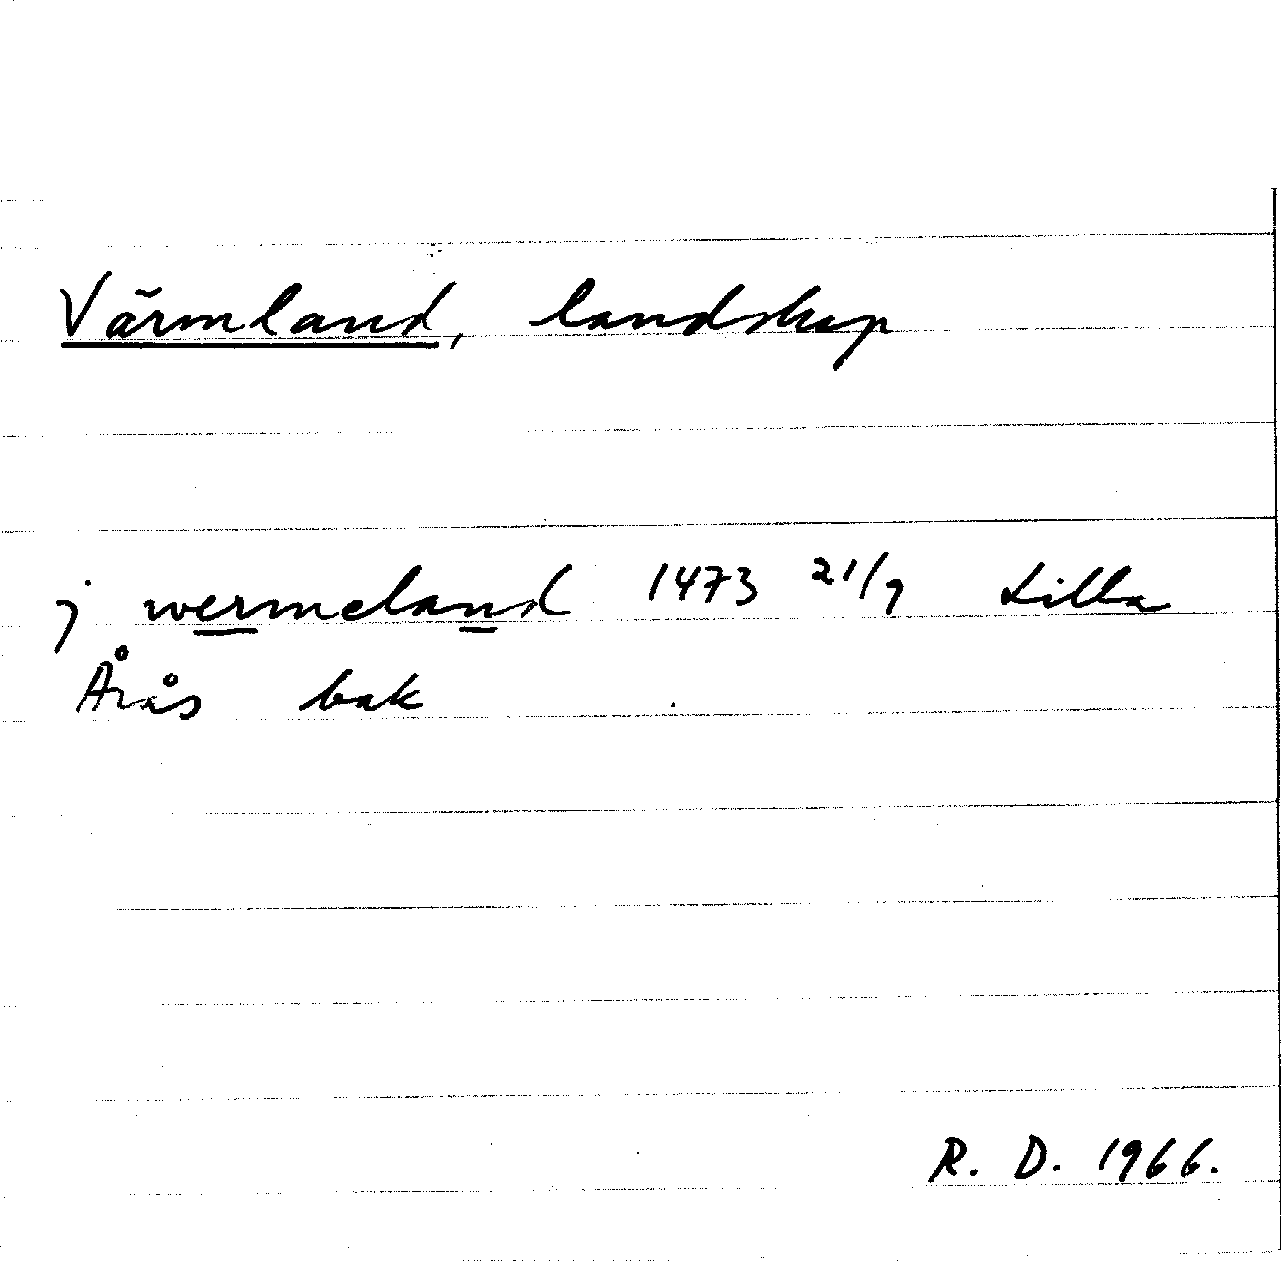 Värmland, landskap
j wermeland 1473 21/9 Lilla
Årås bak
R. D. 1966.